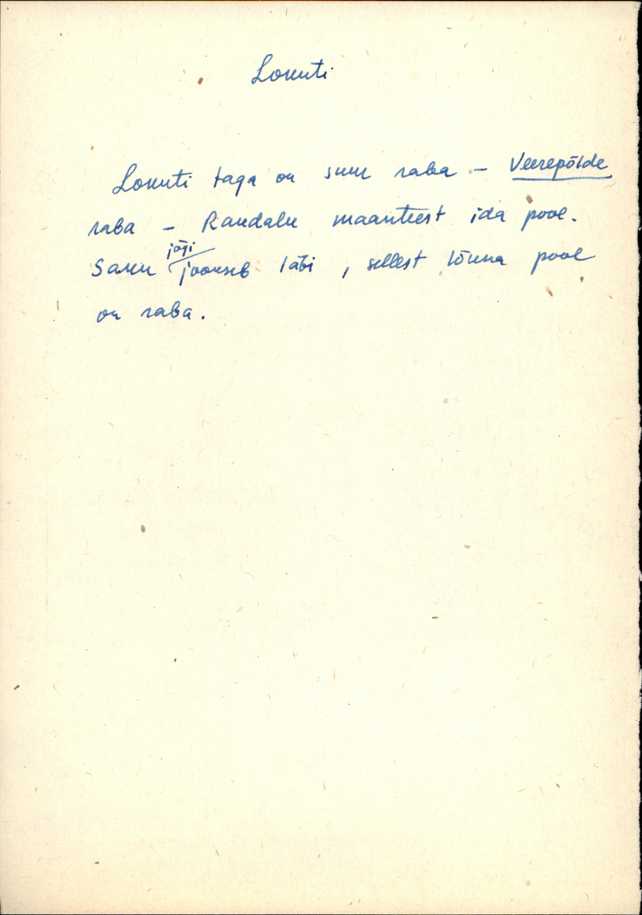 Lokuti
Lokuti taga on suur raba – Veerepõlde
raba – Randalu maanteest ida pool.
Saku jõgi jookseb läbi, sellest lõuna pool
on raba.